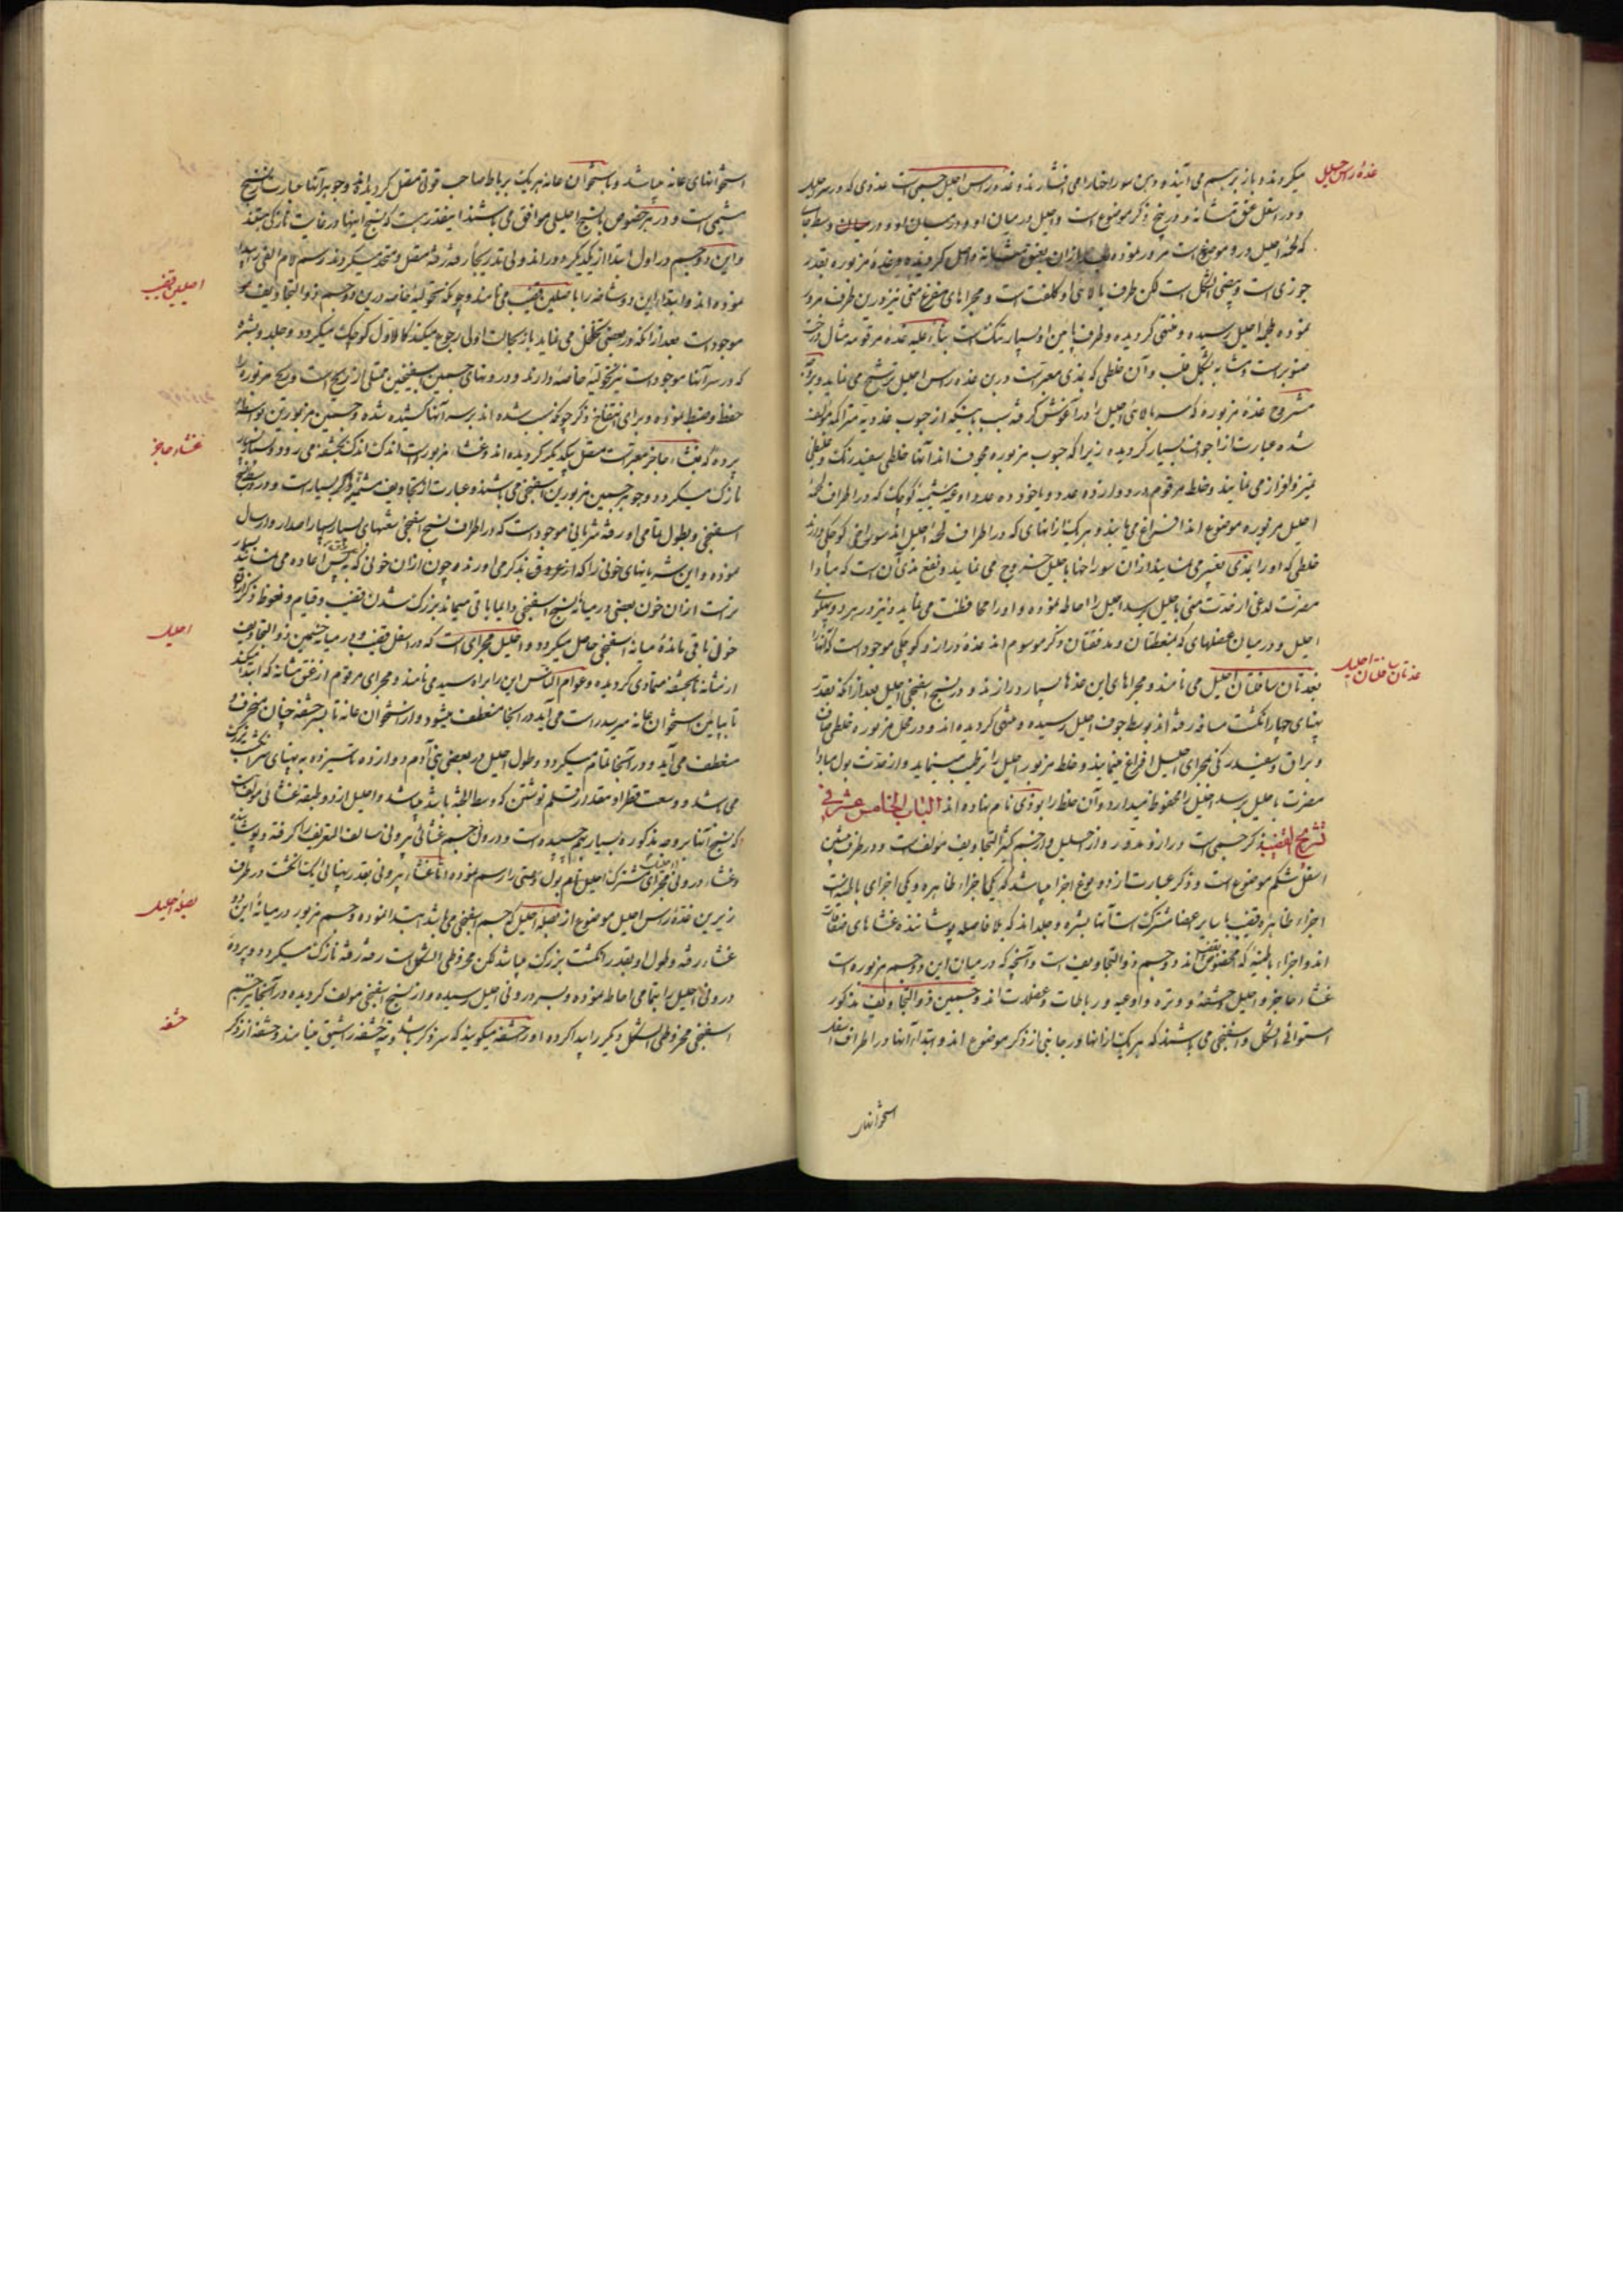 غدهٔ راس احلیل
میکردند و باز بر سم می آیند و و بن سوراخها را می فشارند و غدهٔ راس احلیل جسمی است غددی که در سر احلیل
و در اسفل عنق مثانه و در بیخ ذکر موضوع است و احلیل در میان او و در میان او و در وسط
که لحمهٔ احلیل در و موضوع است مرور نموده بعد ازان بعنق مثانه واصل کردیده و غدهٔ مزبوره بقدر
جوزی است و بیضی الشکل است لکن طرف بالای او کلفت است و مجراهای مفرغ منی نیز درین طرف مرور
نموده بلحمهٔ احلیل رسیده و منتهی کردیده و طرف پایین او بسیار تنک است بناء علیه غدهٔ مرقومه مثال درخت
صنوبر است و مشابه بشکل قلب و آن خلطی که بمذی معبر است درین غدهٔ راس احلیل ترشح می نماید و
مشروح غدهٔ مزبوره که سر بالای احلیل را در آغوش گرفته بسبب اینکه از حبوب غددیه متراکمه مؤلف
شده عبارت از اجواف بسیار کردیده زیرا که حبوب مزبوره مجوف اند آنها خلطی سفید رنک و غلیظی
تمیز و افراز می نمایند و خلط مرقوم در دوازده عدد و یا خود ده عدد اوعیهٔ کوچک که در اطراف لحمهٔ
احلیل مزبوره موضوع اند افراغ می یابند و هر یک ازانهای که در اطراف لحمهٔ احلیل اند سوراخی کوچکی دارند
خلطی که او را بمذی تعبیر می نمایند ازان سوراخها باحلیل خروج می نماید و نفع مذی آن است که مبادا
مضرت لدغی از حدت منی باحلیل برسد احلیل را احاطه نموده و او را محافظت می نماید و نیز در هر دو پهلوی
احلیل و در میان عضلهای که منعظتان و مدفقتان ذکر موسوم اند غدهٔ دراز و کوچکی موجود است که آنها را
غدتان ساقتان احلیل
بغدتان ساقتان احلیل می نامند و مجراهای این غدها بسیار دراز اند و در نسج اسفنجی احلیل بعد از آنکه بقدر
پهنای چهار انکشت مسافه رفته اند بوسط جوف احلیل رسیده و منتهی کردیده اند و در محل مزبوره خلطی صاف
و براق و سفید رنکی بمجرای احلیل افراغ مینمایند و خلط مزبور احلیل را ترطیب مینماید و از حدت بول مبادا
مضرت باحلیل برسد احلیل را محفوظ میدارد و آن خلط را بودی نام نهاده اند الباب الخامس عشر فی
تشریح القضیب ذکر جسمی است دراز و مدور و از احلیل و از جسم کثیر التجاویف مؤلف است و در طرف پیشین
اسفل شکم موضوع است و ذکر عبارت از دو نوع اجزا میباشد که یکی اجزاء ظاهره و یکی اجزای باطنه است
اجزاء ظاهرهٔ قضیب با سایر اعضا مشترک است آنها بشره و جلد اند که بلا فاصله پوشانندهٔ غشاهای
اند و اجزاء باطنیه که مخصوص قضیب اند دو جسم ذو التجاویف است و آنچه که در میان این دو جسم مزبوره است
غشاء حاجز و احلیل و حشفه و وتره و اوعیه و رباطات و عضلات اند و جسمین ذو التجاویف مذکور
استوانی الشکل و اسفنجی می باشند که هر یک ازانها در جانبی از ذکر موضوع اند و ابتداء آنها در اطراف اسفل
استخوانهای
استخوانهای عانه میباشد و باستخوان عانه هر یک برباط صاحب قوتی متصل کردیده اند و جوهر آنها عبارت از نسج
و در هر خصوص بنسج احلیلی موافق می باشند اینقدر هست که نسج اینها در غایت نازکی
و این دو جسم در اول ابتدا از یکدیکر دور اند ولی بتدریج رفته رفته متصل و متحد میکردند و رسم لام الفی
اصلین قضیب
نموده اند و ابتداء این دو شاخه را باصلین قضیب می نامند و چونکه تحولیهٔ خاصه درین دو جسم ذو التجاویف
موجود است بعد از آنکه در بعضی تخلخل می نماید باز بحالت اولی رجوع میکند کالاول کوچک میکردد و جلد و بشره
که در سر آنها موجود است نیز تحولیهٔ خاصه دارند و درونهای جسمین اسفنجین ممتلی از ریح است و ریح مزبوره
حفظ و ضبط نموده و برای انتفاخ ذکر چونکه سبب شده اند بر سر آنها کشیده شده و جسمین مزبورین بواسطهٔ
غشاء حاجز
پرده که بغشاء حاجز معبر است متصل یکدیکر کردیده اند و غشاء مزبور است اندک اندک بحشفه می رود و بسیار
نازک میکردد و جوهر جسمین مزبورین اسفنجی می باشند و عبارت از تجاویف بسیار است و در
اسفنجی و بطول تمامی او رفته شریانی موجود است که در اطراف نسج اسفنجی شعبهای بسیار بسیار اصدار و ارسال
نموده و این شریانهای خونی را که از عروق بذکر می آورند چون ازان خونی که پس اعاده می نمایند
ازان خون بعضی در میانهٔ نسج اسفنجی دایما باقی میماند بزرک شدن قضیب و قیام و نعوظ ذکر از
احلیل
خون باقی ماندهٔ میانهٔ اسفنجی حاصل میکردد و احلیل مجرای است که در اسفل قضیب و در میانه جسمین ذو التجاویف
از مثانه تا بحشفه متمادی کردیده و عوام الناس این را براه سیه می نامند و مجرای مرقوم از عنق مثانه که ابتدا میکند
تا بپایین استخوان عانه میرسد راست می آید در آنجا منعطف میشود و از استخوان عانه تا بسر حشفه چنان منحرف و
منعطف می آید و در آنجا تمام میکردد و طول احلیل در بعضی بنی آدم دوازده تا سیزده بپهنای انکشت بزرک
می باشد و وسعت قطر او مقدار قلم نوشتن که وسط الجثه باشد میباشد و احلیل از دو طبقه غشائی مؤلف است
که نسج آنها بروجه مذکوره بسیار بهم چسپیده است و درونی جسم غشائی بیرونی سالف التعریف را گرفته و پوشانیده
و غشاء درونی مجرای مشترک احلیل نام بول و منی را رسم نموده اما غشاء بیرونی بقدر پهنائی یک انکشت در طرف
بصلهٔ احلیل
زیرین غدهٔ راس احلیل موضوع از بصلهٔ احلیل که جسم اسفنجی می باشد ابتدا نموده و جسم مزبور در میانهٔ این دو
غشاء رفته و طول او بقدر انکشت بزرک میباشد لکن مخروطی الشکل است رفته رفته نازک میکردد و پردهٔ
درونی احلیل را بتمامی احاطه نموده و بسر درونی احلیل رسیده و از نسج اسفنجی مؤلف کردیده و در آنجا نیز جسم
حشفه
اسفنجی مخروطی الشکل دیکر را پیدا کرده او را حشفه میکویند که سر ذکر باشد و ته حشفه را شیق مینامند و حشفه از ذکر